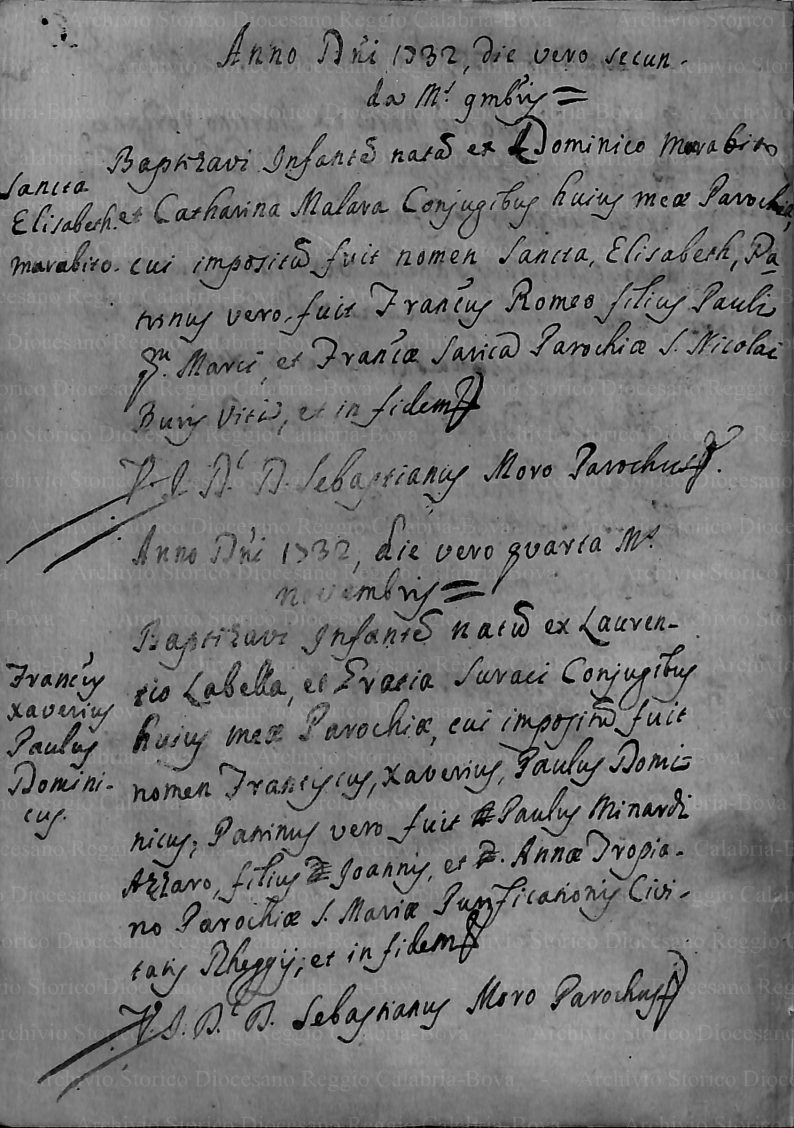 Anno Dñi 1732, die vero secun-
da M.s 9mbris =
Sancta
Elisabeth
marabito.
Baptizavi Infantẽ natã ex Dominico Marabito
et Catharina Malara Conjugibus huius meæ Parochiæ,
cui impositũ fuit nomen Sancta, Elisabeth, Pa-
trinus vero fuit Fran.cus Romeo filius Pauli
qm. Marci, et Fran.cæ Sarica Parochiæ S. Nicolai
Buris Vitis, et in fidem
V. J. D.r D. Sebastianus Moro Parochus
Anno Dñi 1732, die vero quarta M.s
novembris =
Fran.cus
Xaverius
Paulus
Domini-
cus.
Baptizavi Infantẽ natũ ex Lauren-
tio Labella, et Gratia Suraci Conjugibus
huius meæ Parochiæ, cui impositũ fuit
nomen Franciscus, Xaverius, Paulus Domi-
nicus; Patrinus vero fuit Paulus Minardi
Azzaro, filius Joannis, et Annæ Tropia-
no Parochiæ S. Mariæ Purificationis Civi-
tatis Rheggij; et in fidem
V. J. D.r D. Sebastianus Moro Parochus
Archivio Storico Diocesano Reggio Calabria-Bova